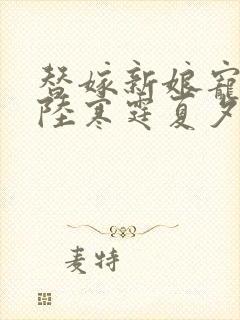 替嫁新娘寵
陸寒霆夏夕
麦特